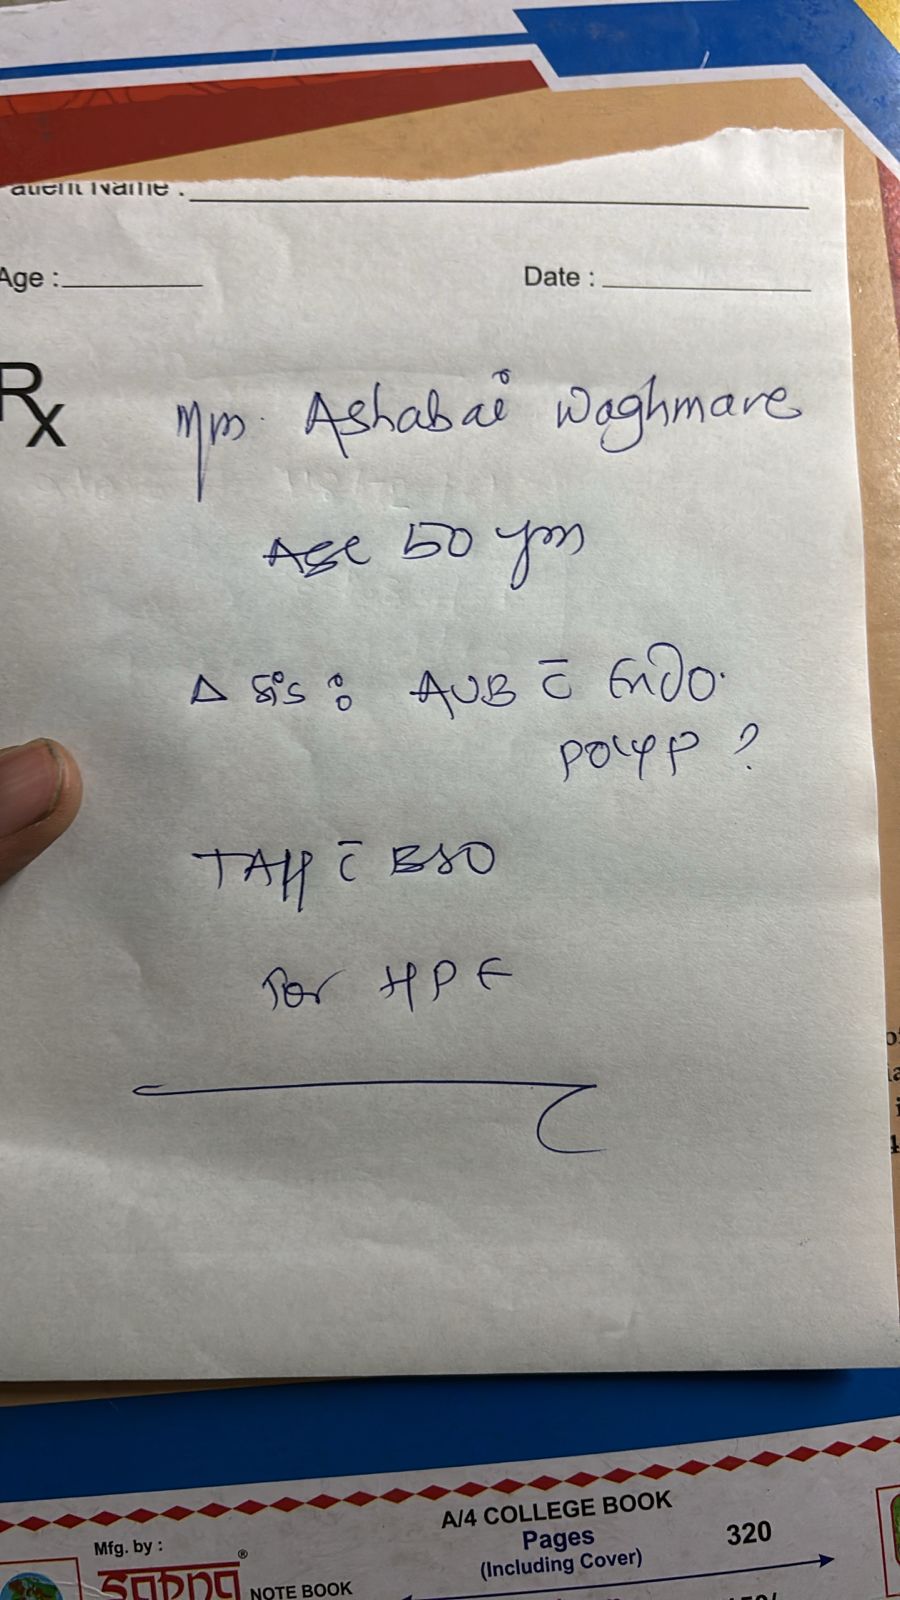 atient Name :
Age :
Date :
Rx
Mrs. Ashabai Waghmare
Age 50 yrs
Δ sis : AUB c̄ Endo.
Polyp ?
TAH c̄ BSO
For HPE
A/4 COLLEGE BOOK
Pages
(Including Cover)
320
Mfg. by :
NOTE BOOK